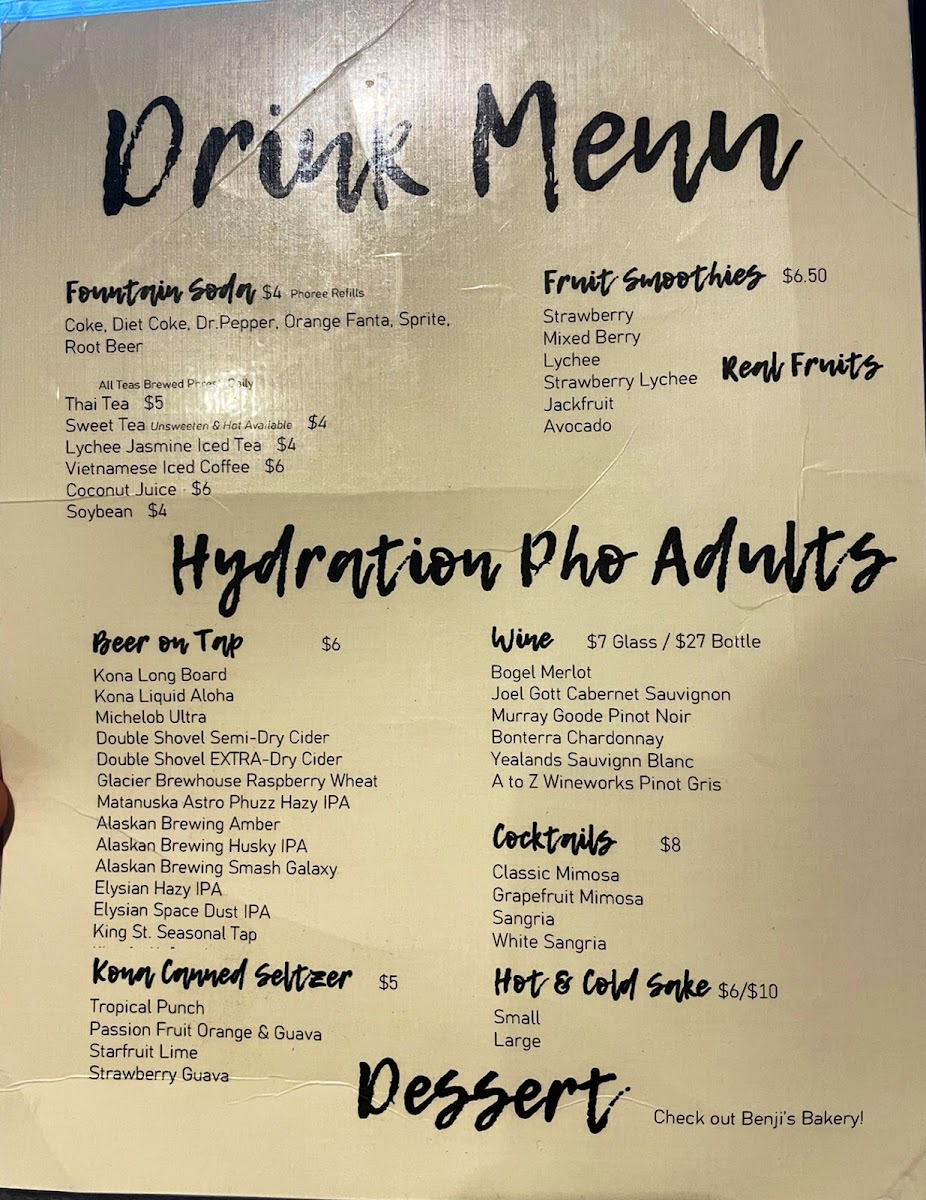 Drink Menu
Fountain Soda $4 Phoree Refills
Coke, Diet Coke, Dr.Pepper, Orange Fanta, Sprite,
Root Beer
All Teas Brewed Daily
Thai Tea $5
Sweet Tea Unsweeten & Hot Available $4
Lychee Jasmine Iced Tea $4
Vietnamese Iced Coffee $6
Coconut Juice $6
Soybean $4
Fruit Smoothies $6.50
Strawberry
Mixed Berry
Lychee
Strawberry Lychee
Jackfruit
Avocado
Real Fruits
Hydration Pho Adults
Beer on Tap $6
Kona Long Board
Kona Liquid Aloha
Michelob Ultra
Double Shovel Semi-Dry Cider
Double Shovel EXTRA-Dry Cider
Glacier Brewhouse Raspberry Wheat
Matanuska Astro Phuzz Hazy IPA
Alaskan Brewing Amber
Alaskan Brewing Husky IPA
Alaskan Brewing Smash Galaxy
Elysian Hazy IPA
Elysian Space Dust IPA
King St. Seasonal Tap
Kona Canned Seltzer $5
Tropical Punch
Passion Fruit Orange & Guava
Starfruit Lime
Strawberry Guava
Wine $7 Glass / $27 Bottle
Bogel Merlot
Joel Gott Cabernet Sauvignon
Murray Goode Pinot Noir
Bonterra Chardonnay
Yealands Sauvignn Blanc
A to Z Wineworks Pinot Gris
Cocktails $8
Classic Mimosa
Grapefruit Mimosa
Sangria
White Sangria
Hot & Cold Sake $6/$10
Small
Large
Dessert
Check out Benji's Bakery!